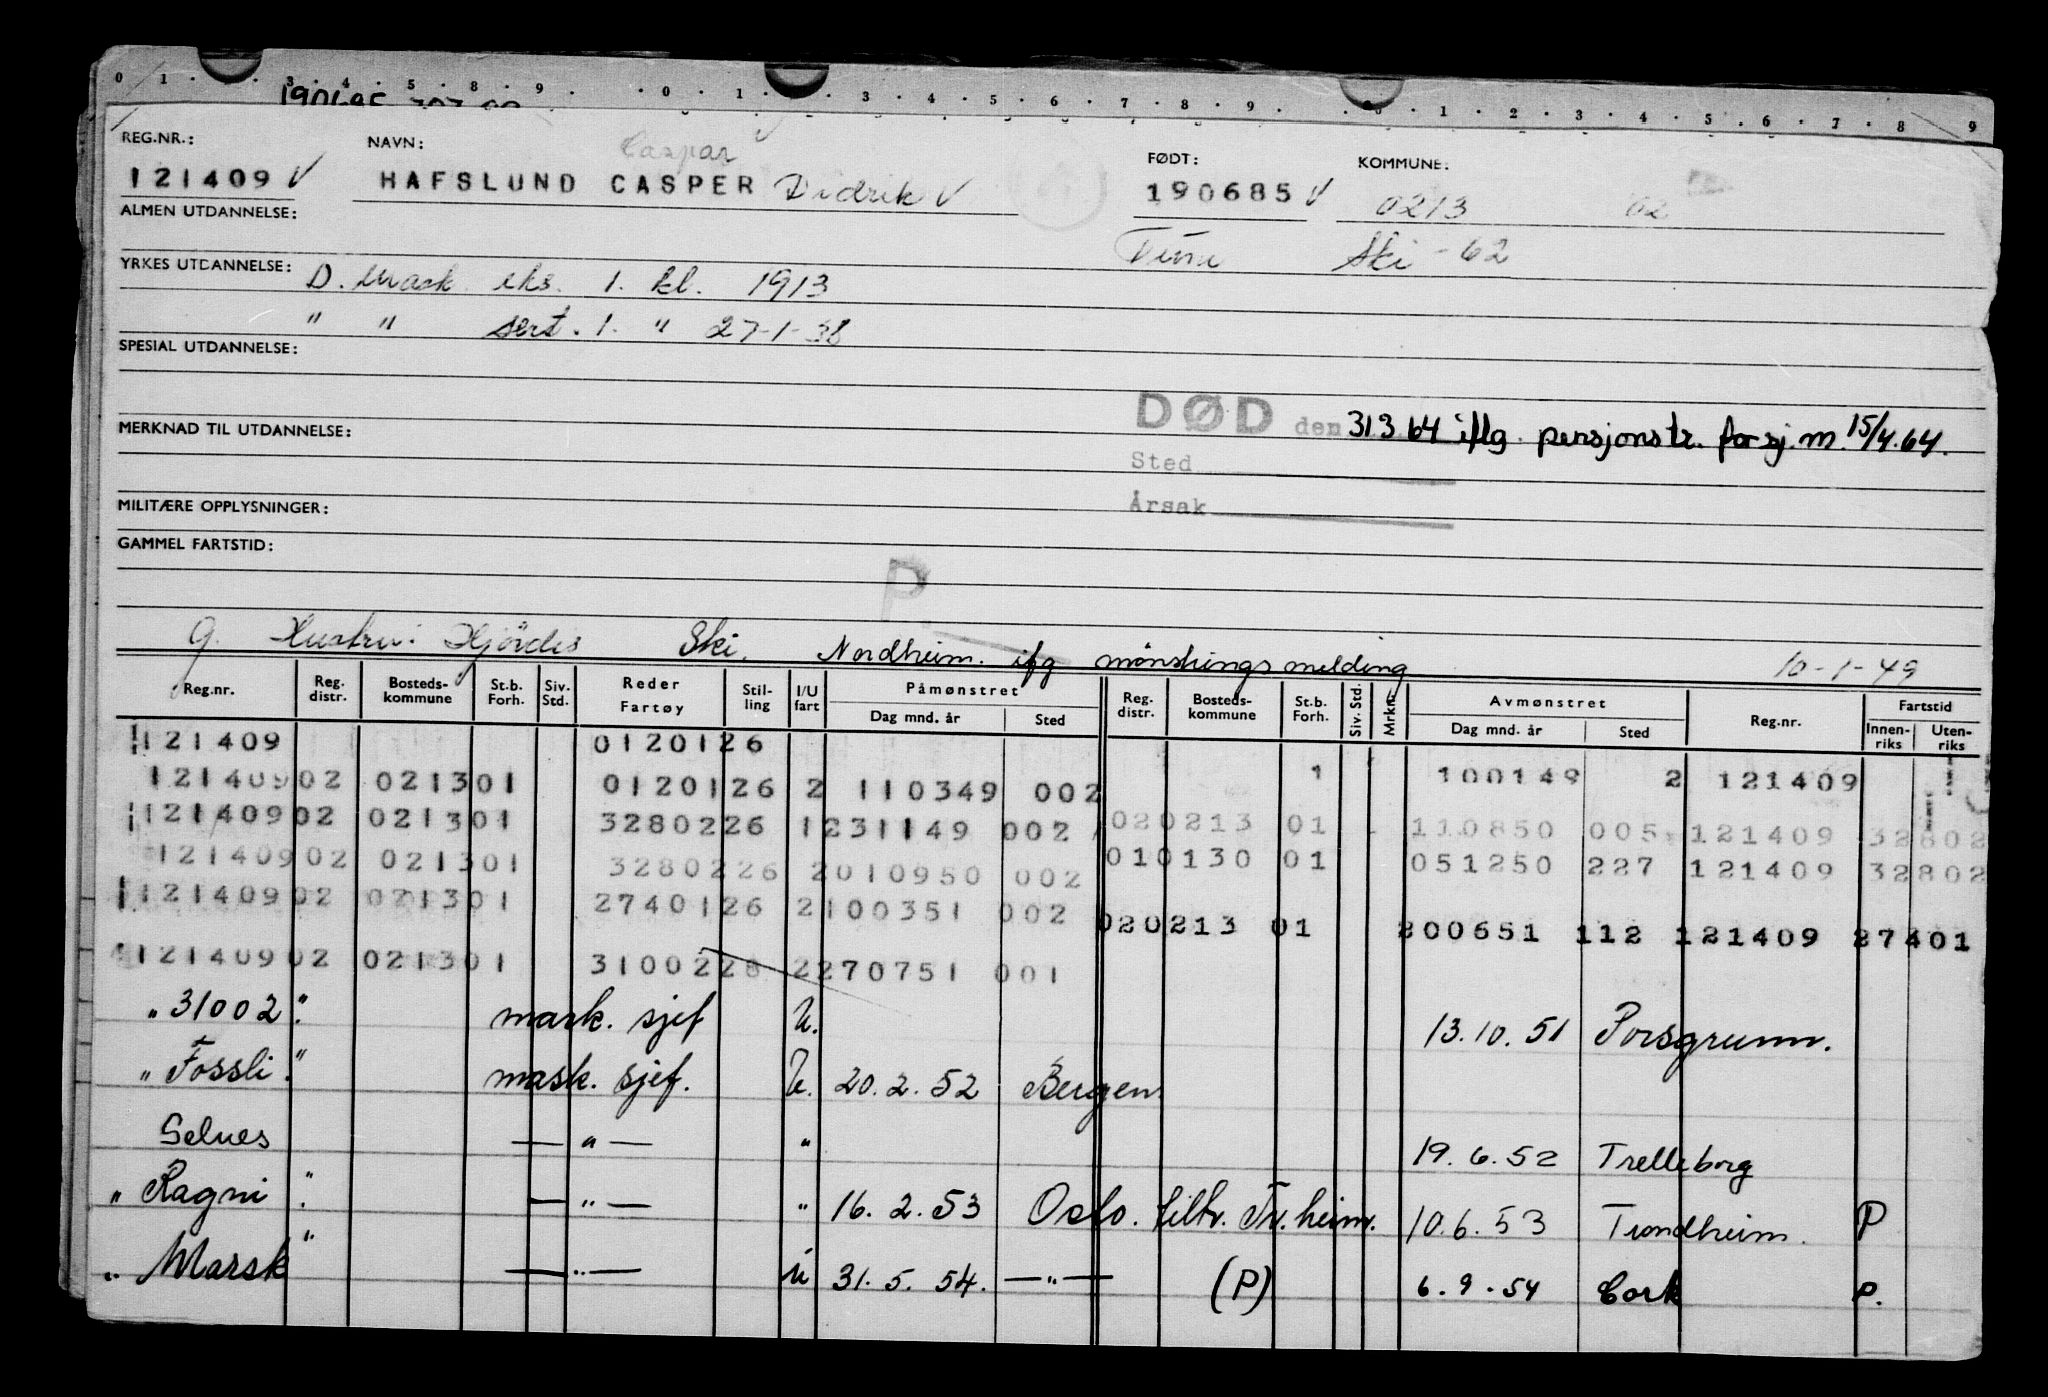 0 1 3 4 5 8 9 0 1 3 4 5 6 7 8 9 0 1 2 3 4 5 6 7 8 9
REG.NR.: NAVN: Caspar FØDT: KOMMUNE:
121409 V HAFSLUND CASPER Didrik V 190685 V 0213 02
ALMEN UTDANNELSE:
Ski - 62
YRKES UTDANNELSE: D. Mask. eks. 1. kl. 1913
" " sert. 1. " 27-1-38
SPESIAL UTDANNELSE:
DØD den 31 3 64 iflg. pensjonstr. for sj.m. 15/4.64.
MERKNAD TIL UTDANNELSE:
Sted
MILITÆRE OPPLYSNINGER:
Årsak
GAMMEL FARTSTID:
P.
G. Hustru: Hjördis Ski. Nordheim. ifg mönstringsmelding 10-1-49
Reg.nr. Reg. distr. Bosteds- kommune St.b. Forh. Siv. Std. Reder Fartøy Stil- ling I/U fart Påmønstret Dag mnd. år Sted Reg. distr. Bosteds- kommune St.b. Forh. Siv. Std. Mrkn. Avmønstret Dag mnd. år Sted Reg.nr. Fartstid Innen- riks Uten- riks
121409 0120126
12140902 021301 0120126 2 110349 002 1 100149 2 121409
12140902 021301 3280226 1231149 002 020213 01 110850 005 121409 32802
12140902 021301 3280226 2010950 002 010130 01 051250 227 121409 32802
12140902 021301 2740126 2100351 002 020213 01 200651 112 121409 27401
12140902 021301 3100228 2270751 001
" 31002 " mask. sjef U. 13.10.51 Porsgrunn.
" Fossli " mask. sjef. U. 20.2.52 Bergen.
Selnes — " — " 19.6.52 Trelleborg
" Ragni " — " — " 16.2.53 Oslo. tiltr. Tr.heim. 10.6.53 Trondheim. P
" Marsk " — " — U 31.5.54. — " — (P) 6.9.54 Cork P.